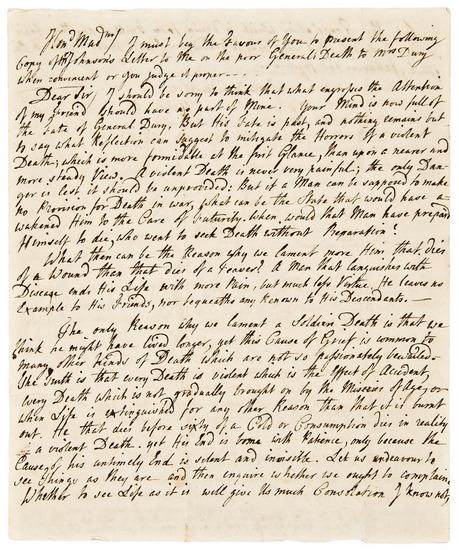 Hond Madm/ I must beg the Favour of You to present the following
Copy of Mr Johnsons Letter to me on the poor Generals Death to Mrs Dury
when convenient or you judge it proper —
Dear Sir/ I should be sorry to think that what engrosses the Attention
of my friend should have no part of Mine. Your Mind is now full of
the Fate of General Dury, But His Fate is past, and nothing remains but
to say what Reflection can suggest to mitigate the Horrors of a violent
Death; which is more formidable at the first Glance, than upon a nearer and
more steady View. A violent Death is never very painful; the only Dan-
ger is lest it should be unprovided: But if a Man can be supposed to make
no Provision for Death in war, what can be the State that would have a-
wakened Him to the Care of futurity. When, would that Man have prepared
Himself to die, who went to seek Death without Preparation?
What then can be the Reason why we lament more Him, that dies
of a Wound than that dies of a Feaver? A Man that languishes with
Disease ends His Life with more Pain, but much less Virtue He leaves no
Example to His Friends, nor bequeaths any Honour to His Descendants. —
The only Reason why we lament a Soldiers Death is that we
think he might have lived longer, yet this Cause of Grief is common to
many other kinds of Death which are not so passionately bewailed—
The Truth is that every Death is violent which is the effect of Accident,
every Death which is not gradually brought on by the Miseries of Age, or
when Life is extinguished for any other Reason than that it is burnt
out. He that dies before sixty of a Cold or Consumption dies in reality
a violent Death. yet His End is borne with Patience, only because the
Cause of his untimely End is silent and invisible. Let us endeavour to
see things as they are and then enquire whether we ought to complain
Whether to see Life as it is will give Us much Consolation I know not;